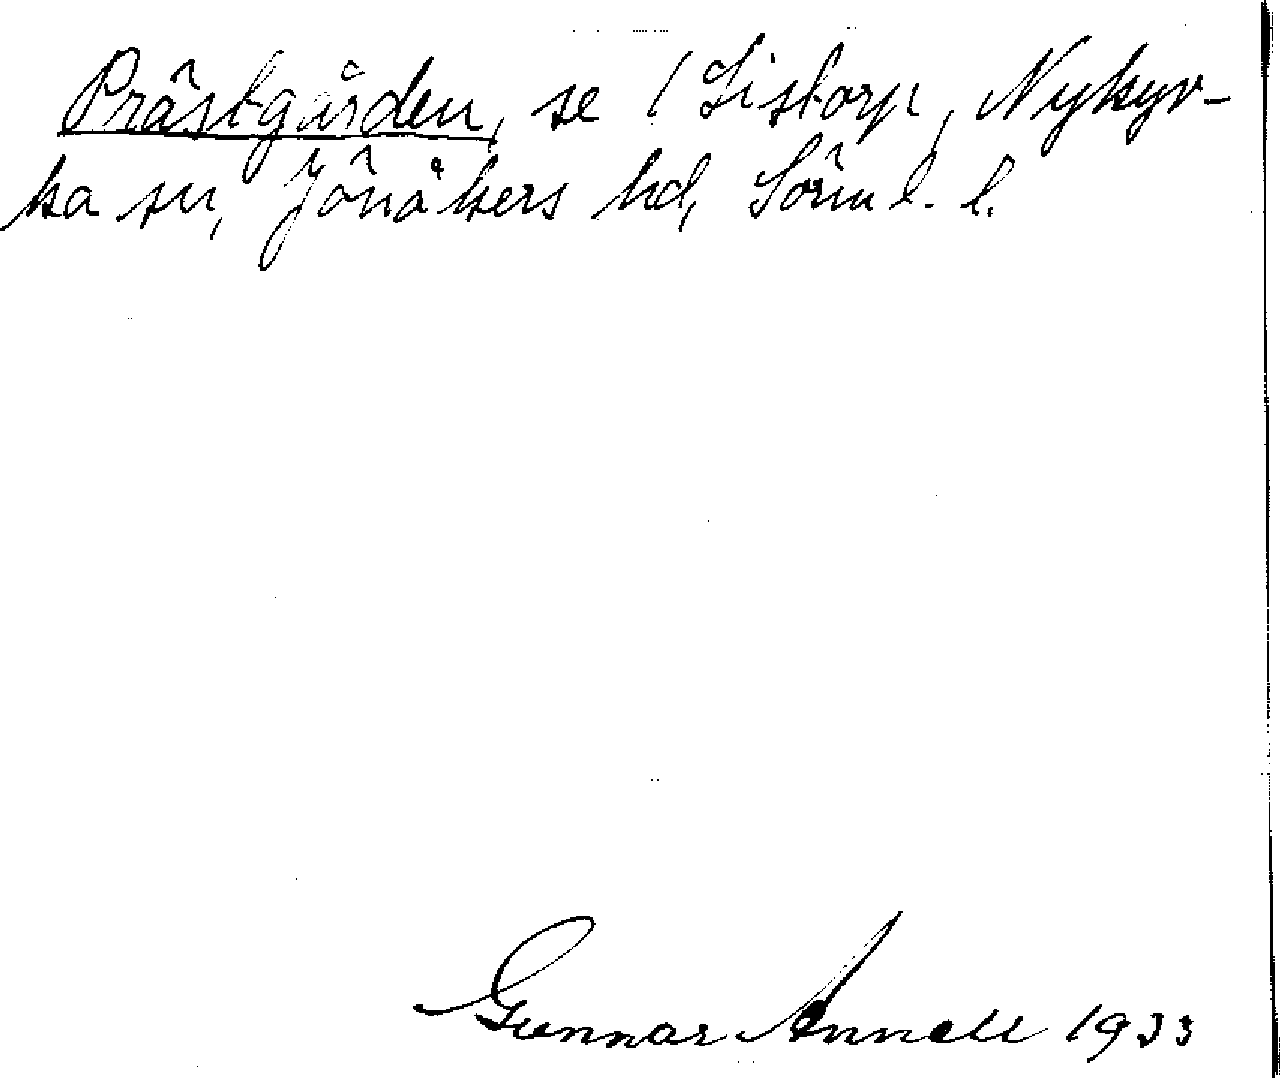 Prästgården, se / Listorp, Nykyr-
ka sn, Jönåkers hd, Sörml. l.
Gunnar Annell 1933